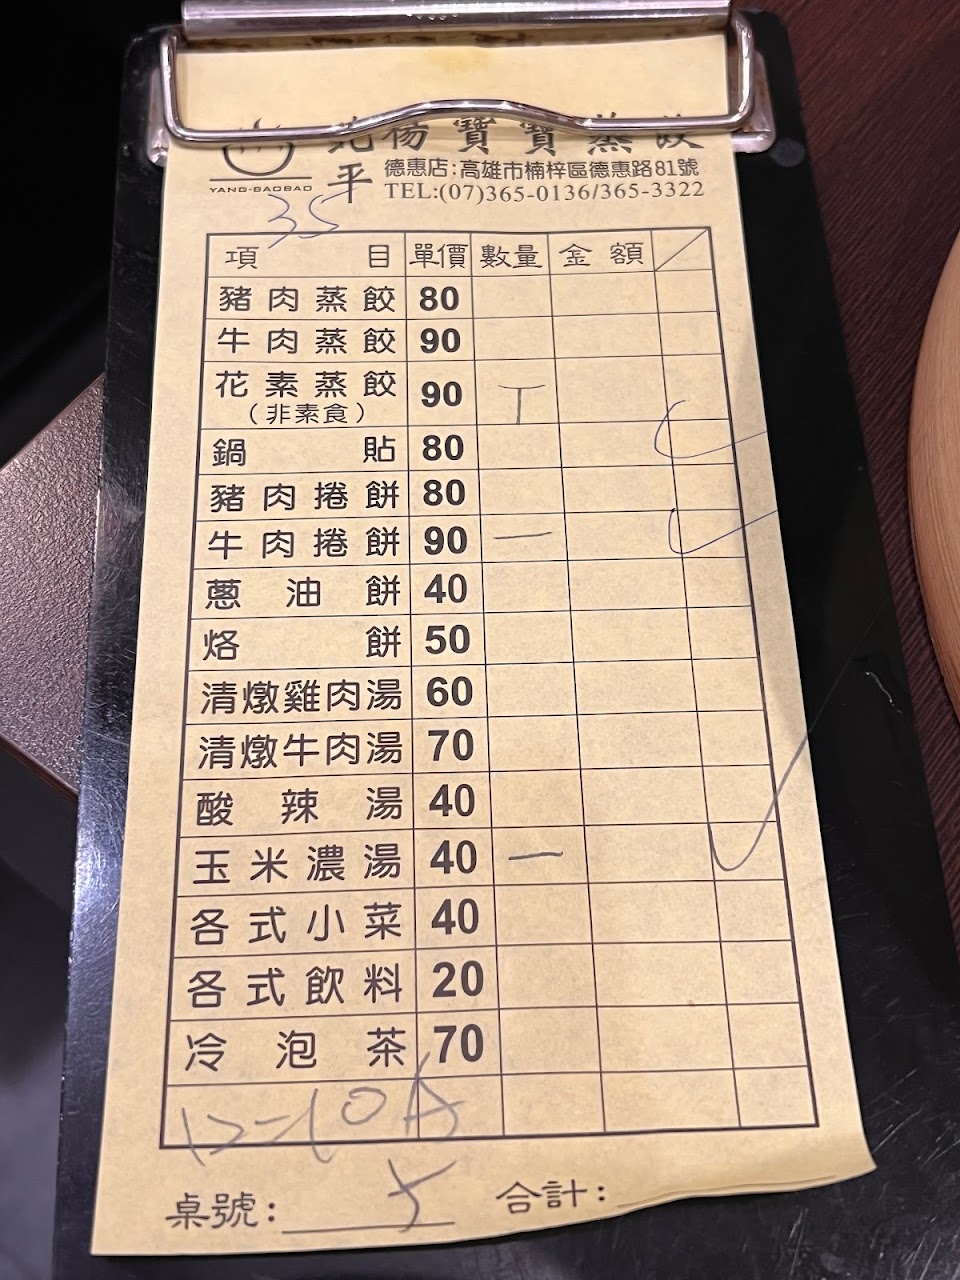 楊寶寶蒸餃
YANG-BAOBAO
平
德惠店:高雄市楠梓區德惠路81號
TEL:(07)365-0136/365-3322
35
項目 單價 數量 金額
豬肉蒸餃 80
牛肉蒸餃 90
花素蒸餃 90 T
(非素食)
鍋貼 80
豬肉捲餅 80
牛肉捲餅 90 一
蔥油餅 40
烙餅 50
清燉雞肉湯 60
清燉牛肉湯 70
酸辣湯 40
玉米濃湯 40 一
各式小菜 40
各式飲料 20
冷泡茶 70
桌號: 5 合計: